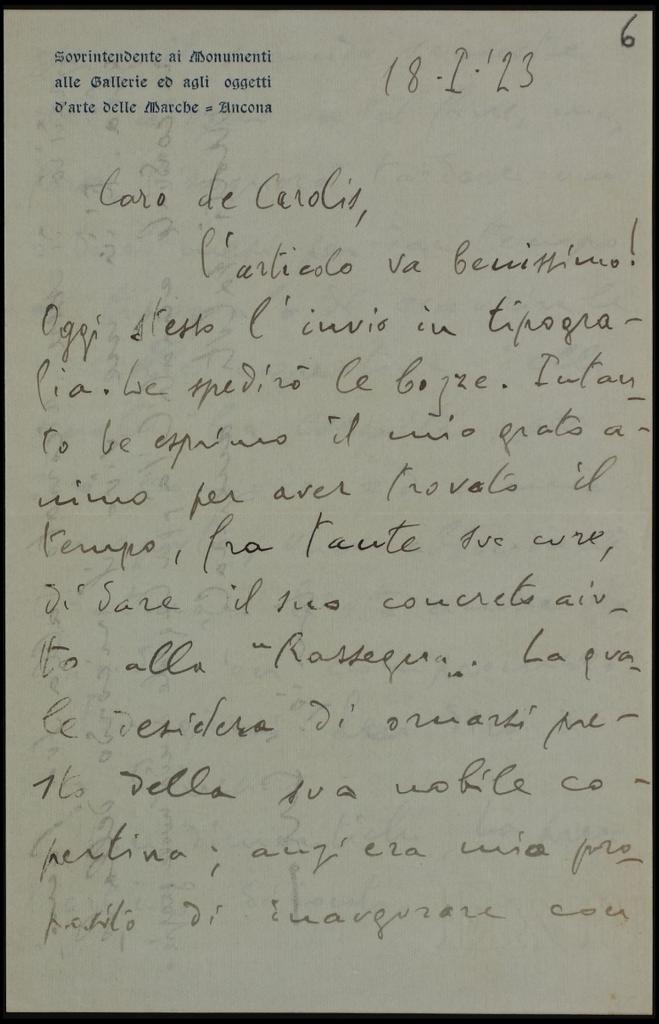 6
Sovrintendente ai Monumenti
alle Gallerie ed agli oggetti
d'arte delle Marche = Ancona
18.I.'23
Caro de Carolis,
l'articolo va benissimo!
Oggi stesso l'invio in tipogra-
fia. Le spedirò le bozze. Intan-
to Le esprimo il mio grato a-
nimo per aver trovato il
tempo, fra tante sue cure,
di dare il suo concreto aiu-
to alla "Rassegna". La qua-
le desidera di ornarsi pre-
sto della sua nobile co-
pertina; anzi era mio pro-
posito di inaugurare con